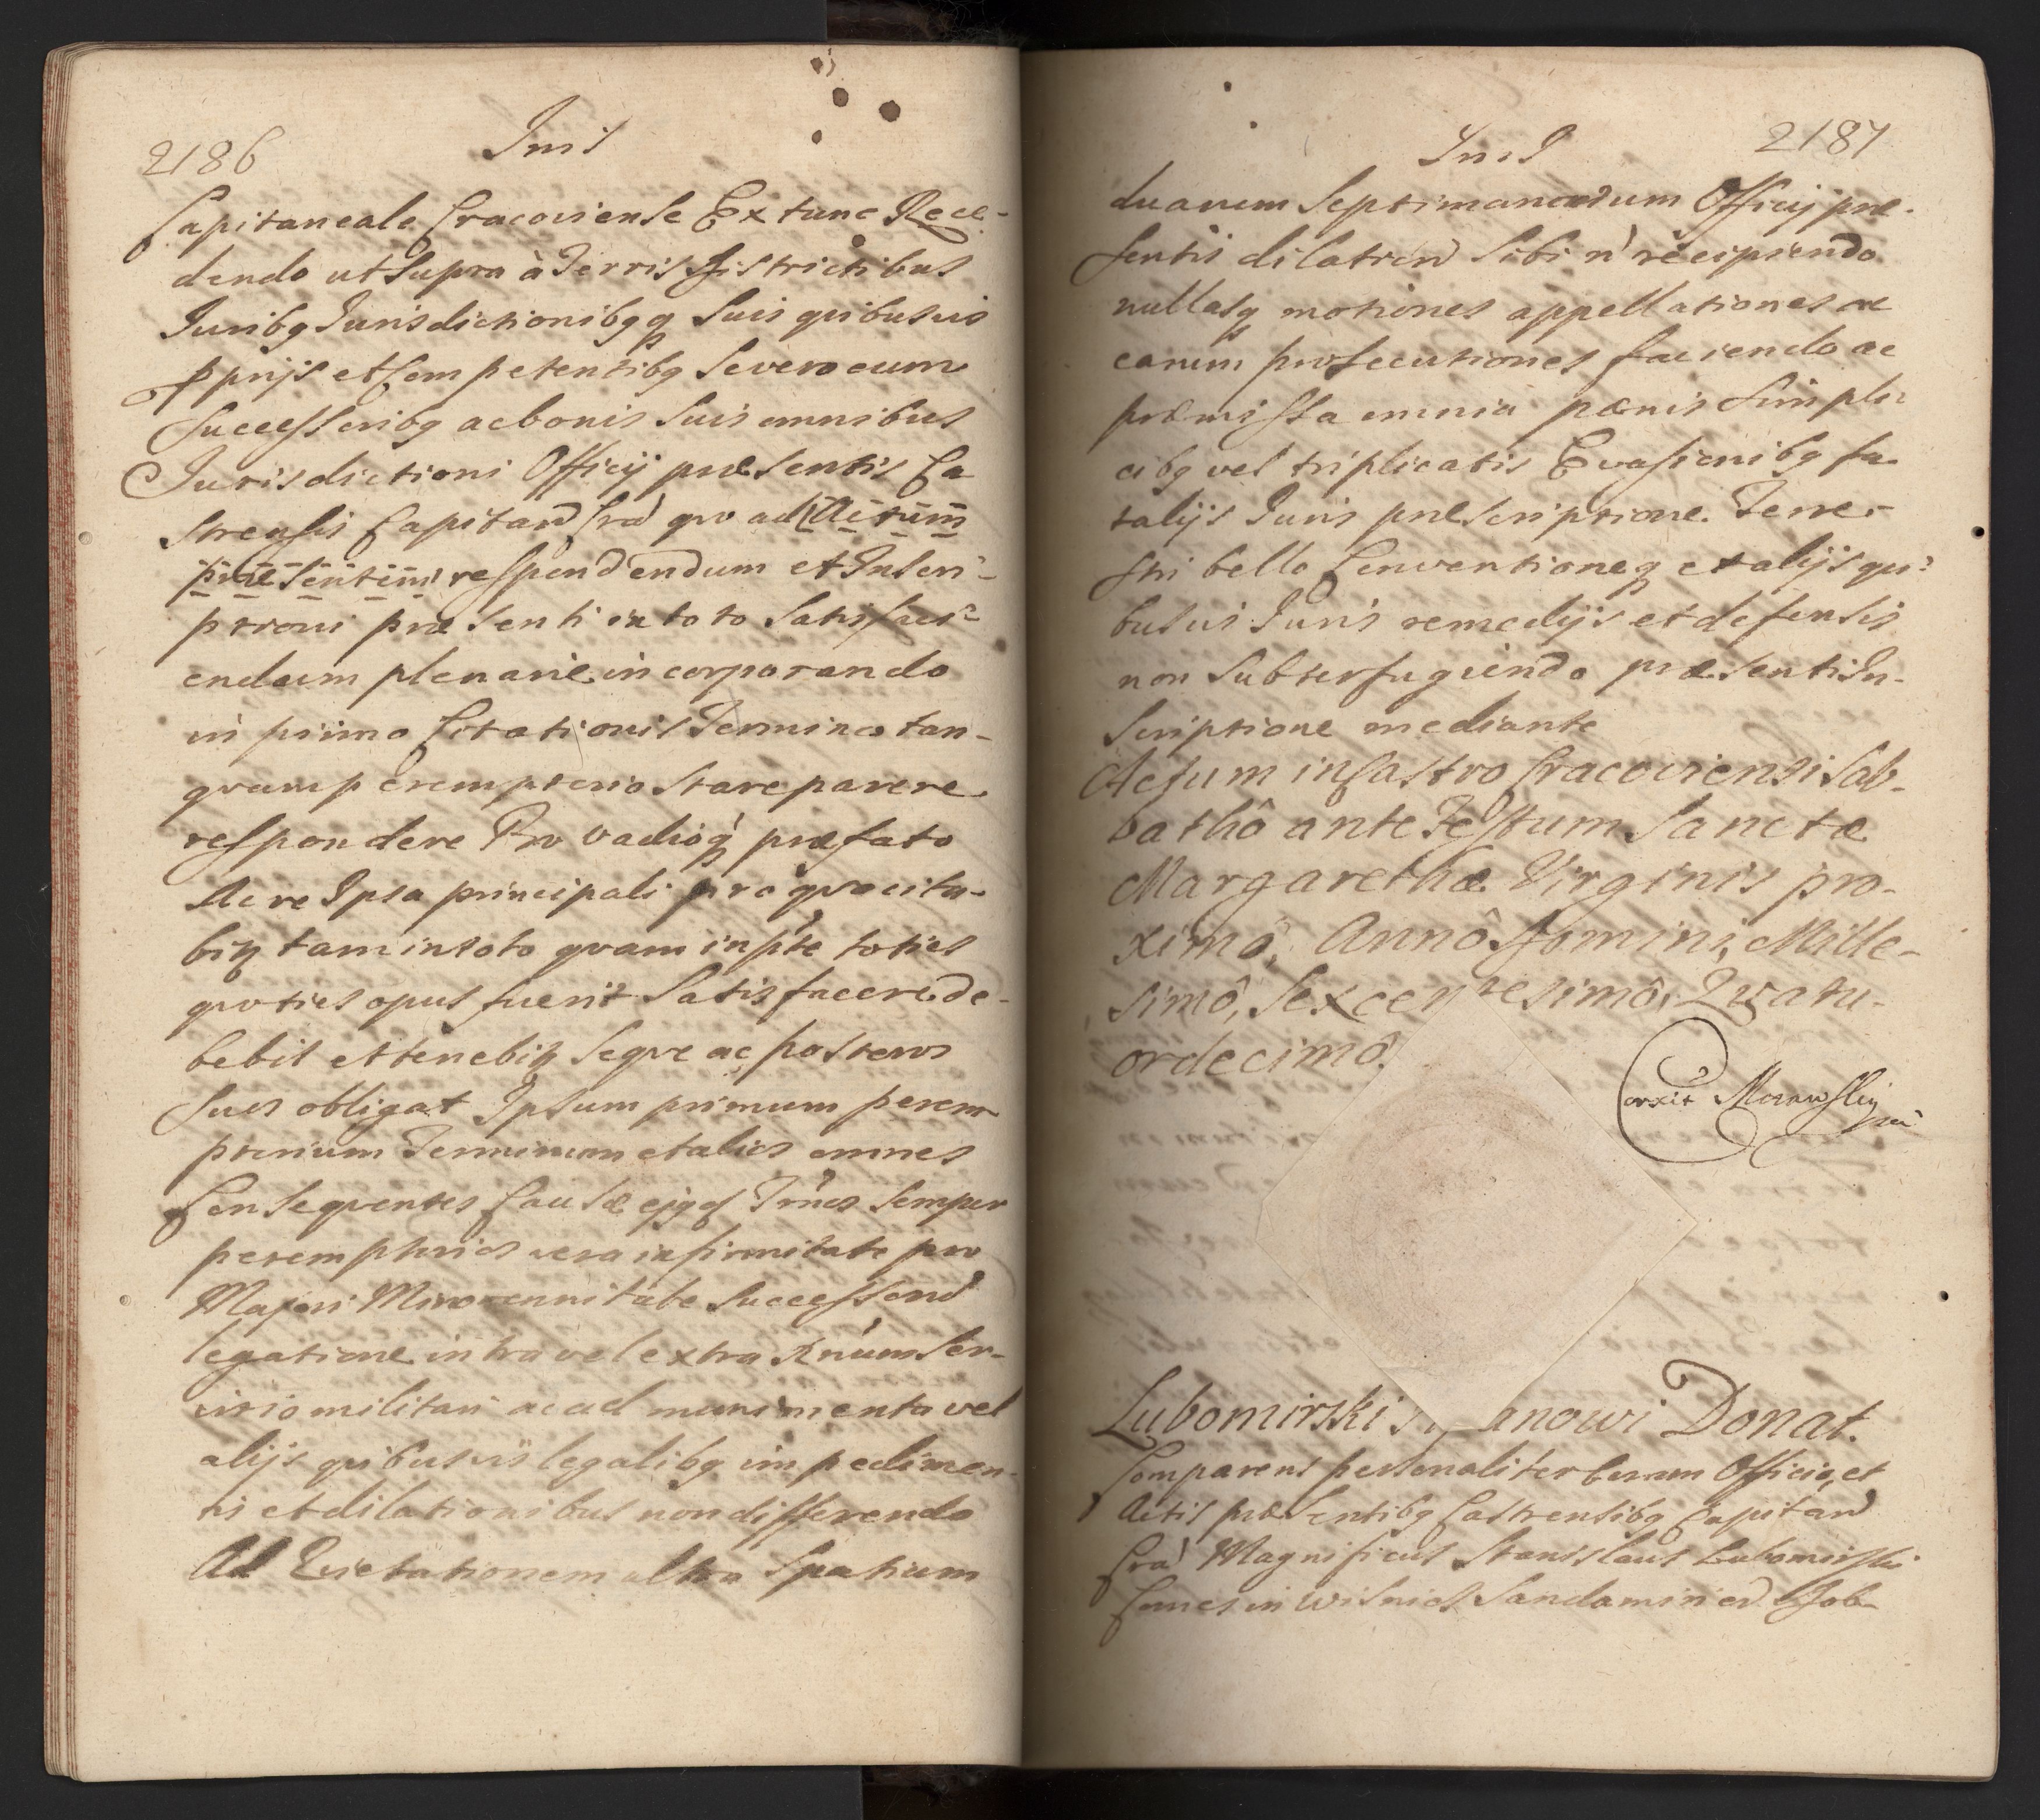 2186
Inis
Capitaneale Cracoviense Ex tunc Rece-
dendo ut supra à Terris Districtibus
Juribq Jurisdictionibqq suis quibusvis
pprijs et Competentibq se vero cum
Successoribq ac bonis suis omnibus
Jurisdictioni Officij præsentis Ca
strensis Capitan̄ Crac̄ quo ad Actum
præsentem respondendum et Inscri-
ptioni præsenti in toto satisfaci-
endum plenarie incorporando
in primo Citationis Termino tan-
quam peremptorio stare parere
respondere Pro vadioq præfato
Ac re Ipsa principali pro quo cita-
bit͛ tam in toto quam in p̄te toties
quoties opus fuerit satisfacere de-
bebit et tenebit͛ seque ac posteros
suos obligat Ipsum primum perem-
ptorium Terminum et alios omnes
Consequentes Causæ ejqd Tr̄nos semper
peremptorios vera infirmitate pro
Majori Minorennitate Successorū
legatione intra vel extra Rn̄um Ser-
vitio militari ac ad munimenta vel
alijs quibusvis legalibq impedimen-
tis et dilationibus non differendo
Ad Quietationem ultra spatium
2187
Inis
duarum Septimanarum Officij præ-
sentis dilation̄ sibi n̄ recipiendo
nullasq motiones appellationes ac
earum prosecutiones faciendo ac
præmissa omnia pænis simpli-
cibq vel triplicatis Evasionibq fa-
talijs Juris præscriptione Terre-
stri bello Conventioneq et alijs qui-
busvis Juris remedijs et defensis
non subterfugiendo præsenti In-
scriptione mediante
Actum in Castro Cracoviensi Sab-
bathô ante Festum Sanctæ
Margarethæ Virginis pro-
ximô, Annô Domini, Mille-
simô, Sexcentesimô, Quatu-
ordecimô.
Corxit
Lubomirski anowi Donat.
Comparens personaliter Coram Officio, et
Actis præsentibq Castrensibq Capitan̄
Crac̄ Magnificus Stanislaus Lubomirski
Comes in Wisnicz Sandomirien̄ Dob-